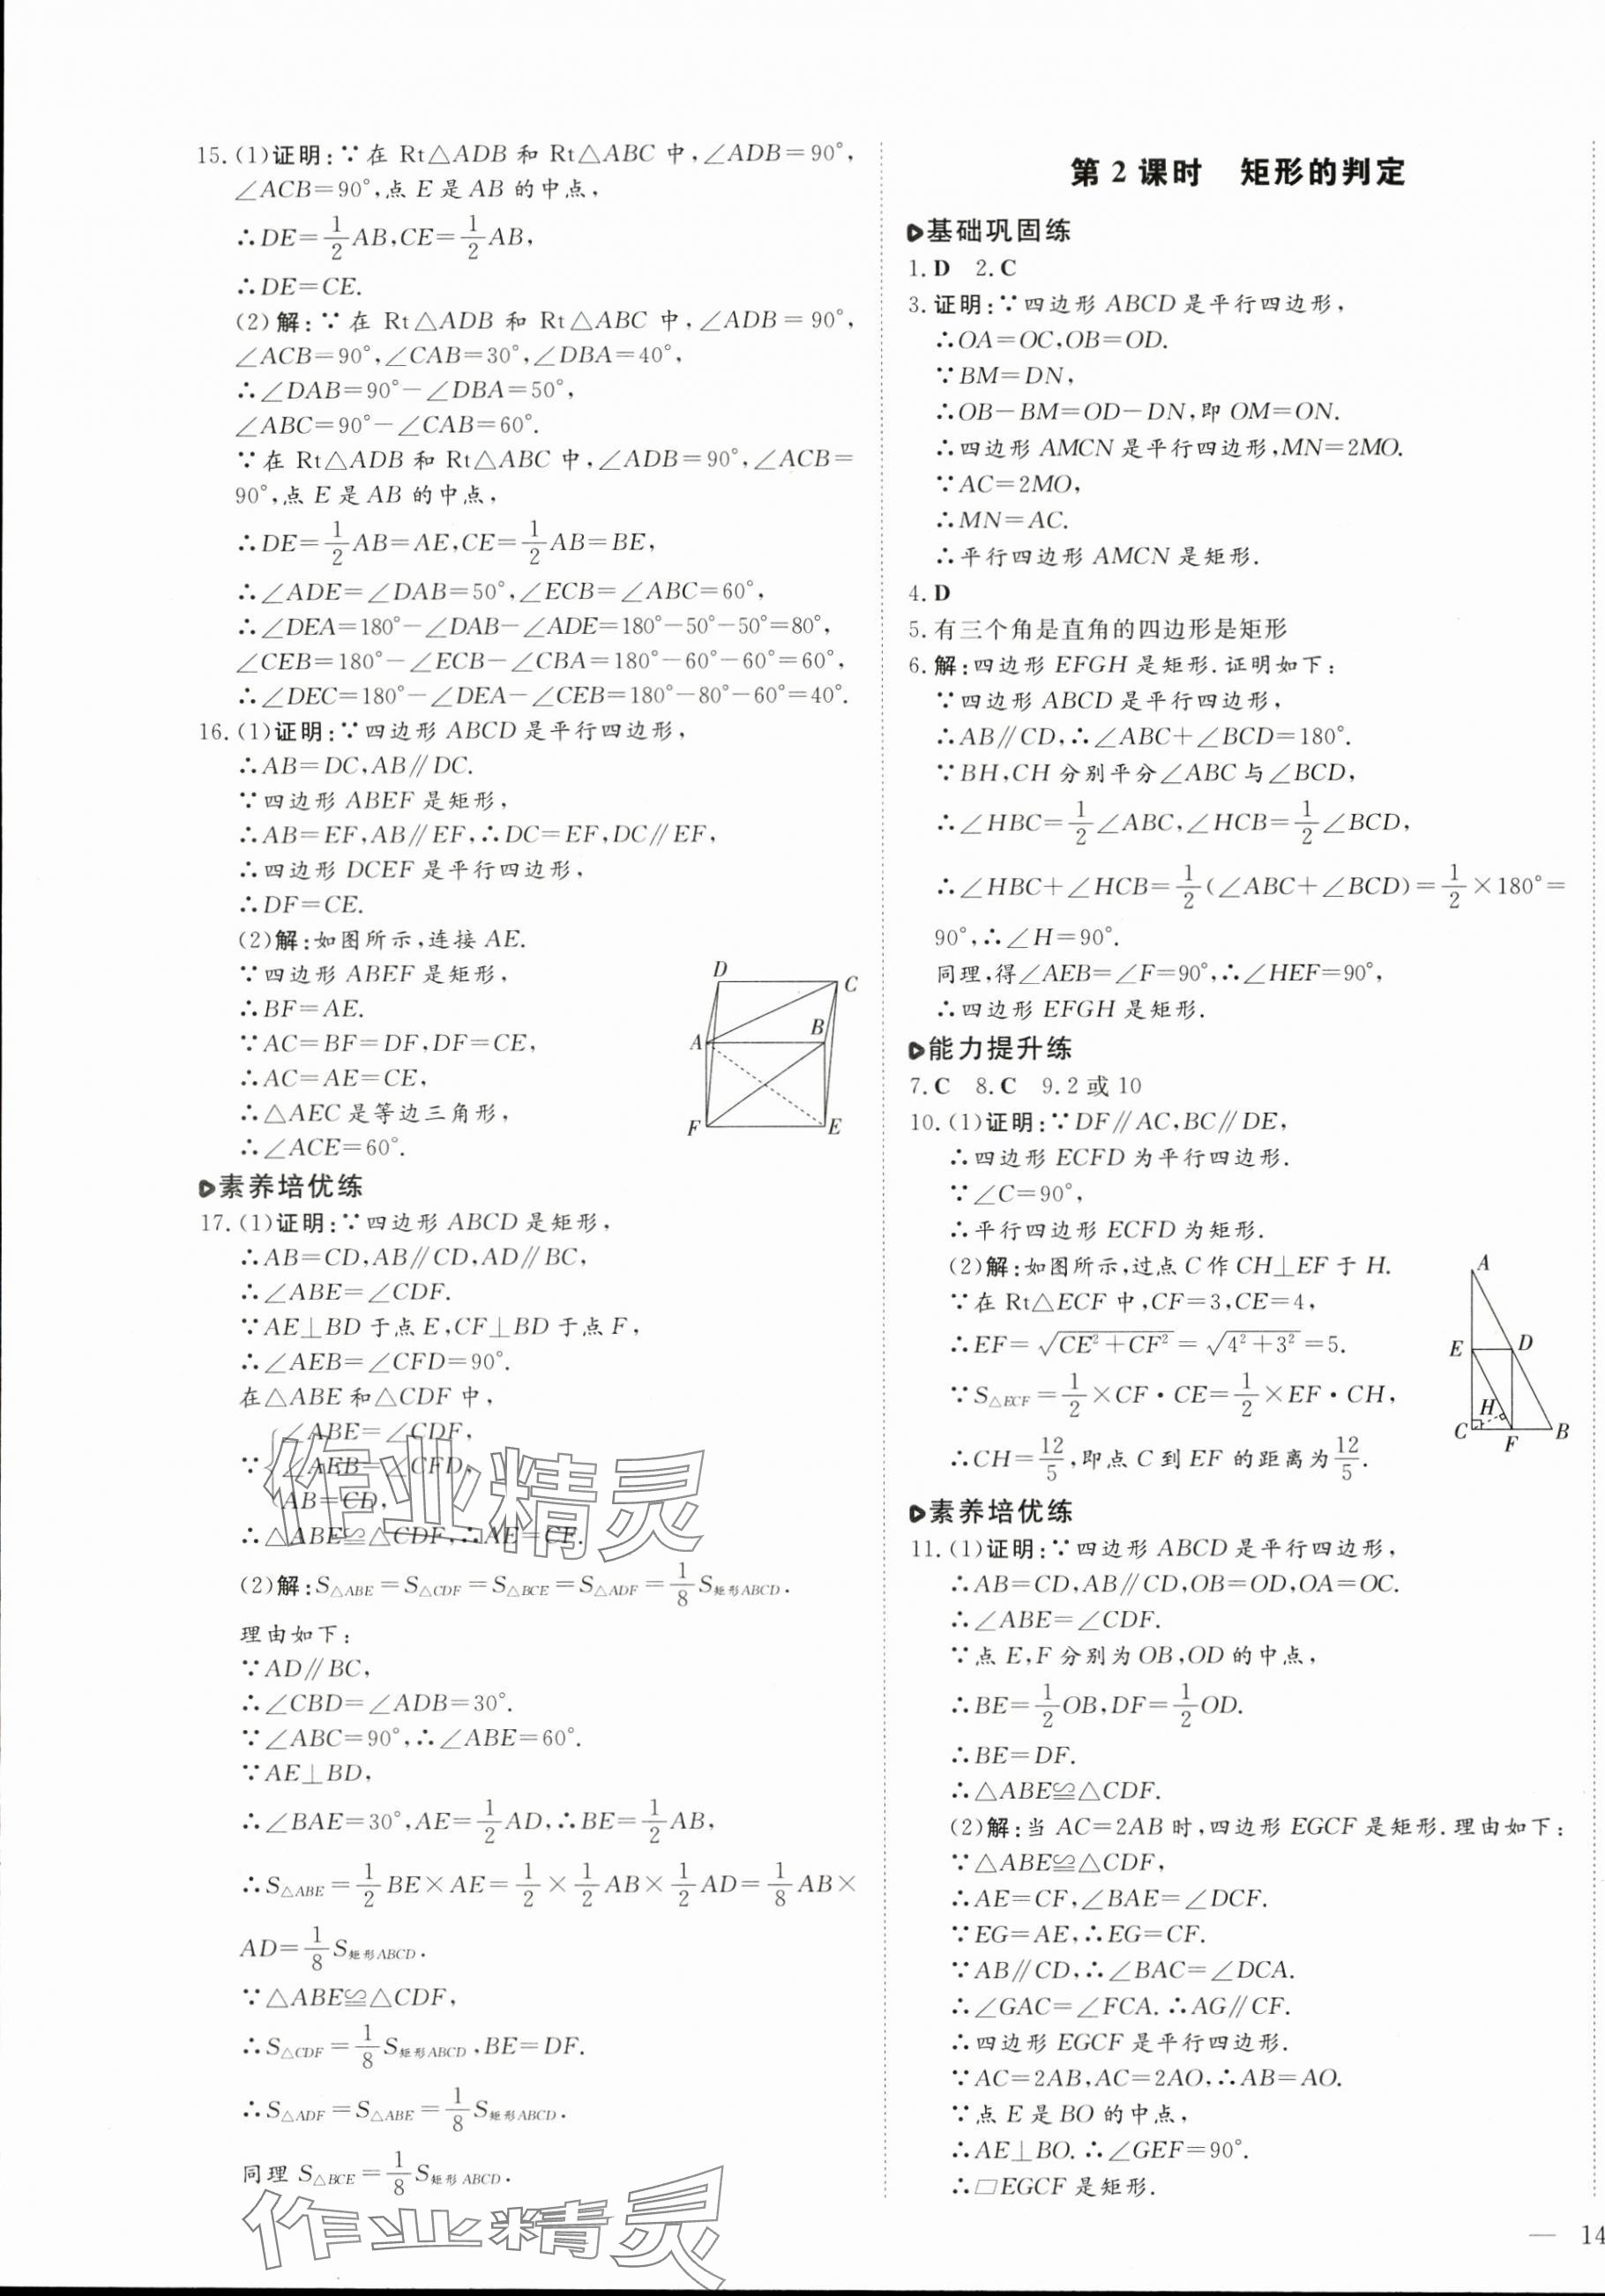 15.(1)证明:∵在 Rt△ADB 和 Rt△ABC 中,∠ADB=90°,
∠ACB=90°,点 E 是 AB 的中点,
∴DE=1/2AB,CE=1/2AB,
∴DE=CE.
(2)解:∵在 Rt△ADB 和 Rt△ABC 中,∠ADB=90°,
∠ACB=90°,∠CAB=30°,∠DBA=40°,
∴∠DAB=90°-∠DBA=50°,
∠ABC=90°-∠CAB=60°.
∵在 Rt△ADB 和 Rt△ABC 中,∠ADB=90°,∠ACB=
90°,点 E 是 AB 的中点,
∴DE=1/2AB=AE,CE=1/2AB=BE,
∴∠ADE=∠DAB=50°,∠ECB=∠ABC=60°,
∴∠DEA=180°-∠DAB-∠ADE=180°-50°-50°=80°,
∠CEB=180°-∠ECB-∠CBA=180°-60°-60°=60°,
∴∠DEC=180°-∠DEA-∠CEB=180°-80°-60°=40°.
16.(1)证明:∵四边形 ABCD 是平行四边形,
∴AB=DC,AB∥DC.
∵四边形 ABEF 是矩形,
∴AB=EF,AB∥EF,∴DC=EF,DC∥EF,
∴四边形 DCEF 是平行四边形,
∴DF=CE.
(2)解:如图所示,连接 AE.
∵四边形 ABEF 是矩形,
∴BF=AE.
∵AC=BF=DF,DF=CE,
∴AC=AE=CE,
∴△AEC 是等边三角形,
∴∠ACE=60°.
D
C
A
B
F
E
素养培优练
17.(1)证明:∵四边形 ABCD 是矩形,
∴AB=CD,AB∥CD,AD∥BC,
∴∠ABE=∠CDF.
∵AE⊥BD 于点 E,CF⊥BD 于点 F,
∴∠AEB=∠CFD=90°.
在△ABE 和△CDF 中,
∠ABE=∠CDF,
∵{∠AEB=∠CFD,
AB=CD,
∴△ABE≌△CDF,∴AE=CF.
(2)解:S△ABE=S△CDF=S△BCE=S△ADF=1/8S矩形ABCD.
理由如下:
∵AD∥BC,
∴∠CBD=∠ADB=30°.
∵∠ABC=90°,∴∠ABE=60°.
∵AE⊥BD,
∴∠BAE=30°,AE=1/2AD,∴BE=1/2AB,
∴S△ABE=1/2BE×AE=1/2×1/2AB×1/2AD=1/8AB×
AD=1/8S矩形ABCD.
∵△ABE≌△CDF,
∴S△CDF=1/8S矩形ABCD,BE=DF.
∴S△ADF=S△ABE=1/8S矩形ABCD.
同理 S△BCE=1/8S矩形ABCD.
作业精灵
作业精灵
第 2 课时 矩形的判定
基础巩固练
1.D 2.C
3.证明:∵四边形 ABCD 是平行四边形,
∴OA=OC,OB=OD.
∵BM=DN,
∴OB-BM=OD-DN,即 OM=ON.
∴四边形 AMCN 是平行四边形,MN=2MO.
∵AC=2MO,
∴MN=AC.
∴平行四边形 AMCN 是矩形.
4.D
5.有三个角是直角的四边形是矩形
6.解:四边形 EFGH 是矩形.证明如下:
∵四边形 ABCD 是平行四边形,
∴AB∥CD,∴∠ABC+∠BCD=180°.
∵BH,CH 分别平分∠ABC 与∠BCD,
∴∠HBC=1/2∠ABC,∠HCB=1/2∠BCD,
∴∠HBC+∠HCB=1/2(∠ABC+∠BCD)=1/2×180°=
90°,∴∠H=90°.
同理,得∠AEB=∠F=90°,∴∠HEF=90°,
∴四边形 EFGH 是矩形.
能力提升练
7.C 8.C 9.2 或 10
10.(1)证明:∵DF∥AC,BC∥DE,
∴四边形 ECFD 为平行四边形.
∵∠C=90°,
∴平行四边形 ECFD 为矩形.
(2)解:如图所示,过点 C 作 CH⊥EF 于 H.
∵在 Rt△ECF 中,CF=3,CE=4,
∴EF=√(CE²+CF²)=√(4²+3²)=5.
∵S△ECF=1/2×CF·CE=1/2×EF·CH,
∴CH=12/5,即点 C 到 EF 的距离为12/5.
A
E
D
H
C
F
B
素养培优练
11.(1)证明:∵四边形 ABCD 是平行四边形,
∴AB=CD,AB∥CD,OB=OD,OA=OC.
∴∠ABE=∠CDF.
∵点 E,F 分别为 OB,OD 的中点,
∴BE=1/2OB,DF=1/2OD.
∴BE=DF.
∴△ABE≌△CDF.
(2)解:当 AC=2AB 时,四边形 EGCF 是矩形.理由如下:
∵△ABE≌△CDF,
∴AE=CF,∠BAE=∠DCF.
∵EG=AE,∴EG=CF.
∵AB∥CD,∴∠BAC=∠DCA.
∴∠GAC=∠FCA.∴AG∥CF.
∴四边形 EGCF 是平行四边形.
∵AC=2AB,AC=2AO,∴AB=AO.
∵点 E 是 BO 的中点,
∴AE⊥BO.∴∠GEF=90°.
∴□EGCF 是矩形.
— 14